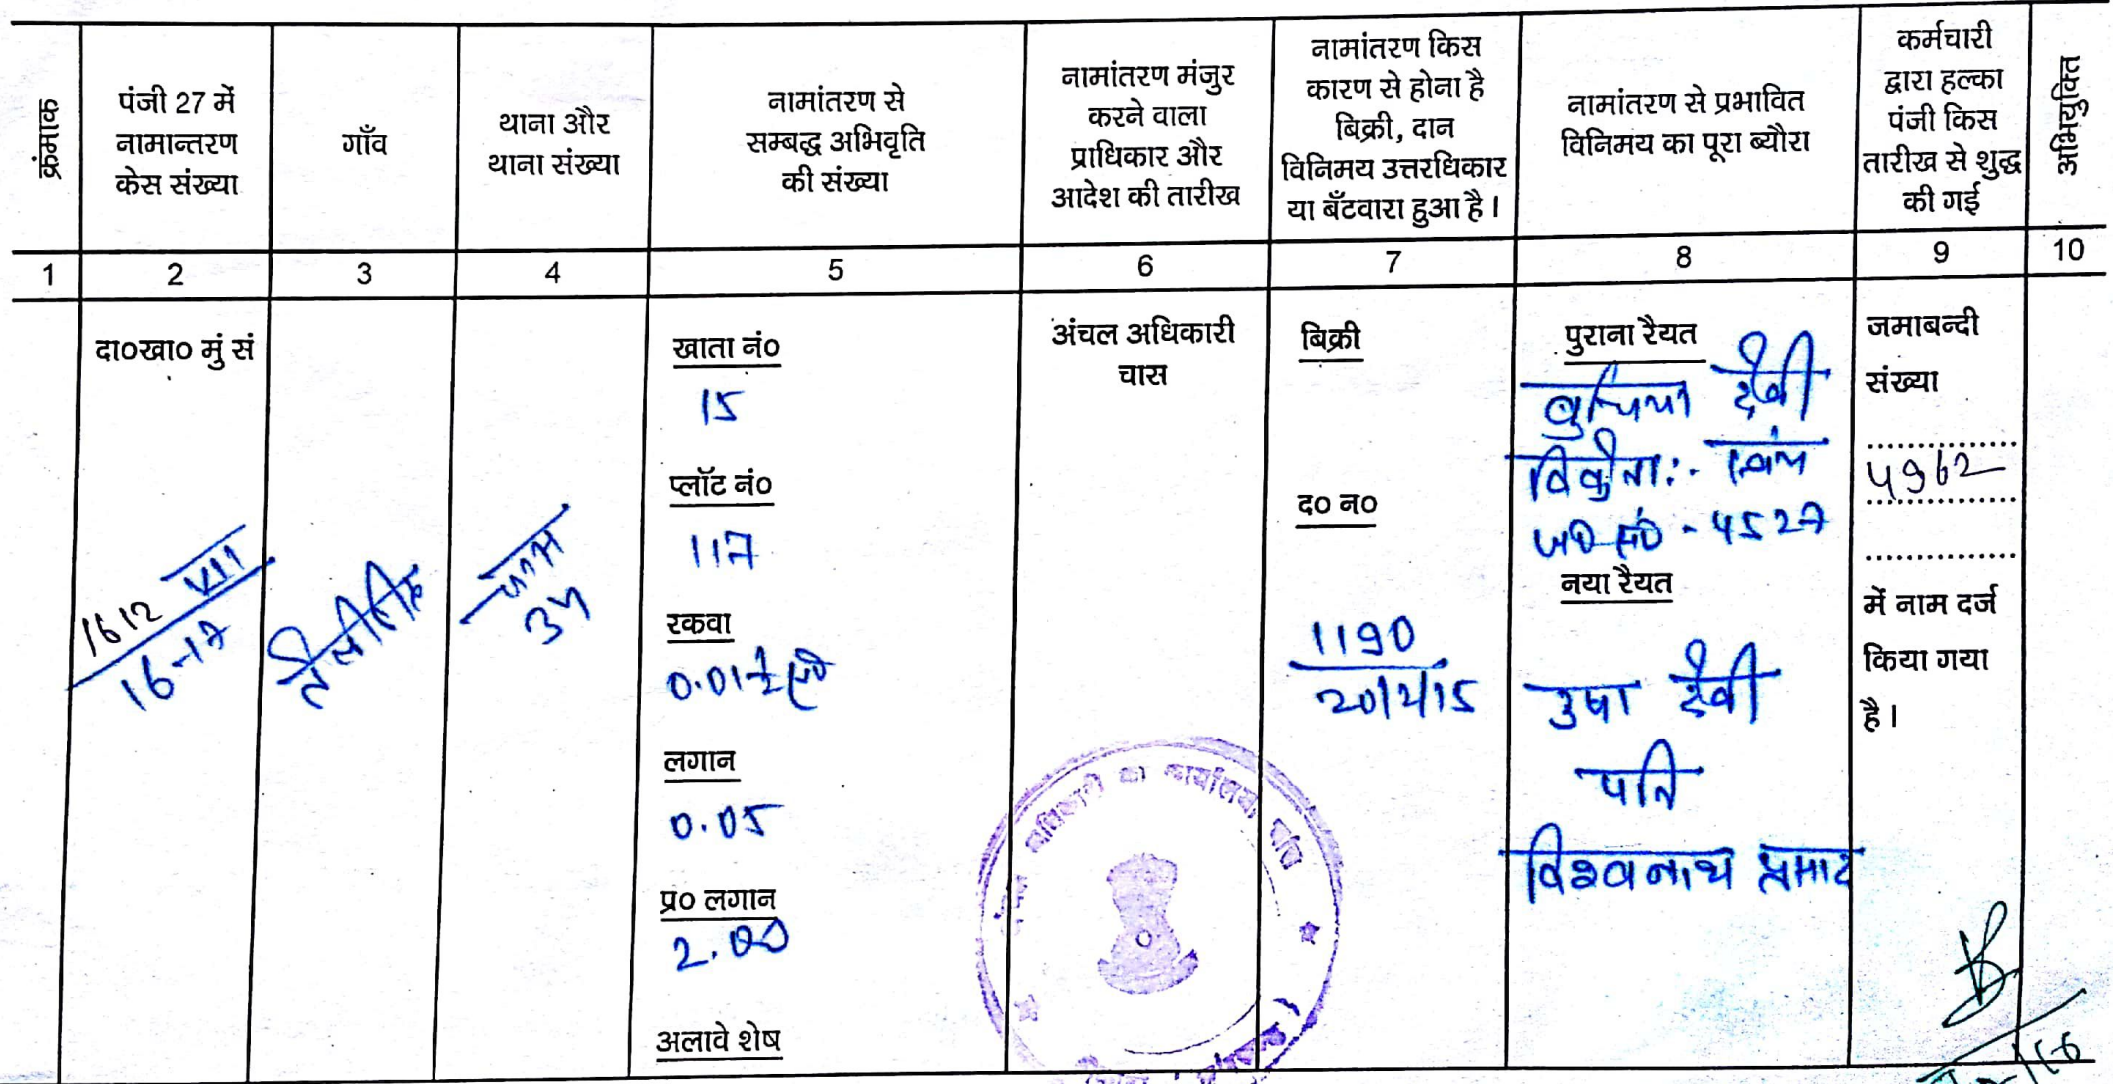 क्रंमाक
पंजी 27 में
नामान्तरण
केस संख्या
गाँव
थाना और
थाना संख्या
नामांतरण से
सम्बद्ध अभिवृति
की संख्या
नामांतरण मंजुर
करने वाला
प्राधिकार और
आदेश की तारीख
नामांतरण किस
कारण से होना है
बिक्री, दान
विनिमय उत्तरधिकार
या बँटवारा हुआ है।
नामांतरण से प्रभावित
विनिमय का पूरा ब्यौरा
कर्मचारी
द्वारा हल्का
पंजी किस
तारीख से शुद्ध
की गई
अभियुक्ति
1 2 3 4 5 6 7 8 9 10
दा०खा० मुं सं
1612 VII
16-17
34
खाता नं०
15
प्लॉट नं०
117
रकवा
0.01½
लगान
0.05
प्र० लगान
2.00
अलावे शेष
अंचल अधिकारी
चास
बिक्री
द० न०
1190
20/2/15
पुराना रैयत
देवी
4527
नया रैयत
उषा देवी
पति
विश्वनाथ प्रसाद
जमाबन्दी
संख्या
..................
4962
..................
..................
में नाम दर्ज
किया गया
है।
का कार्यालय